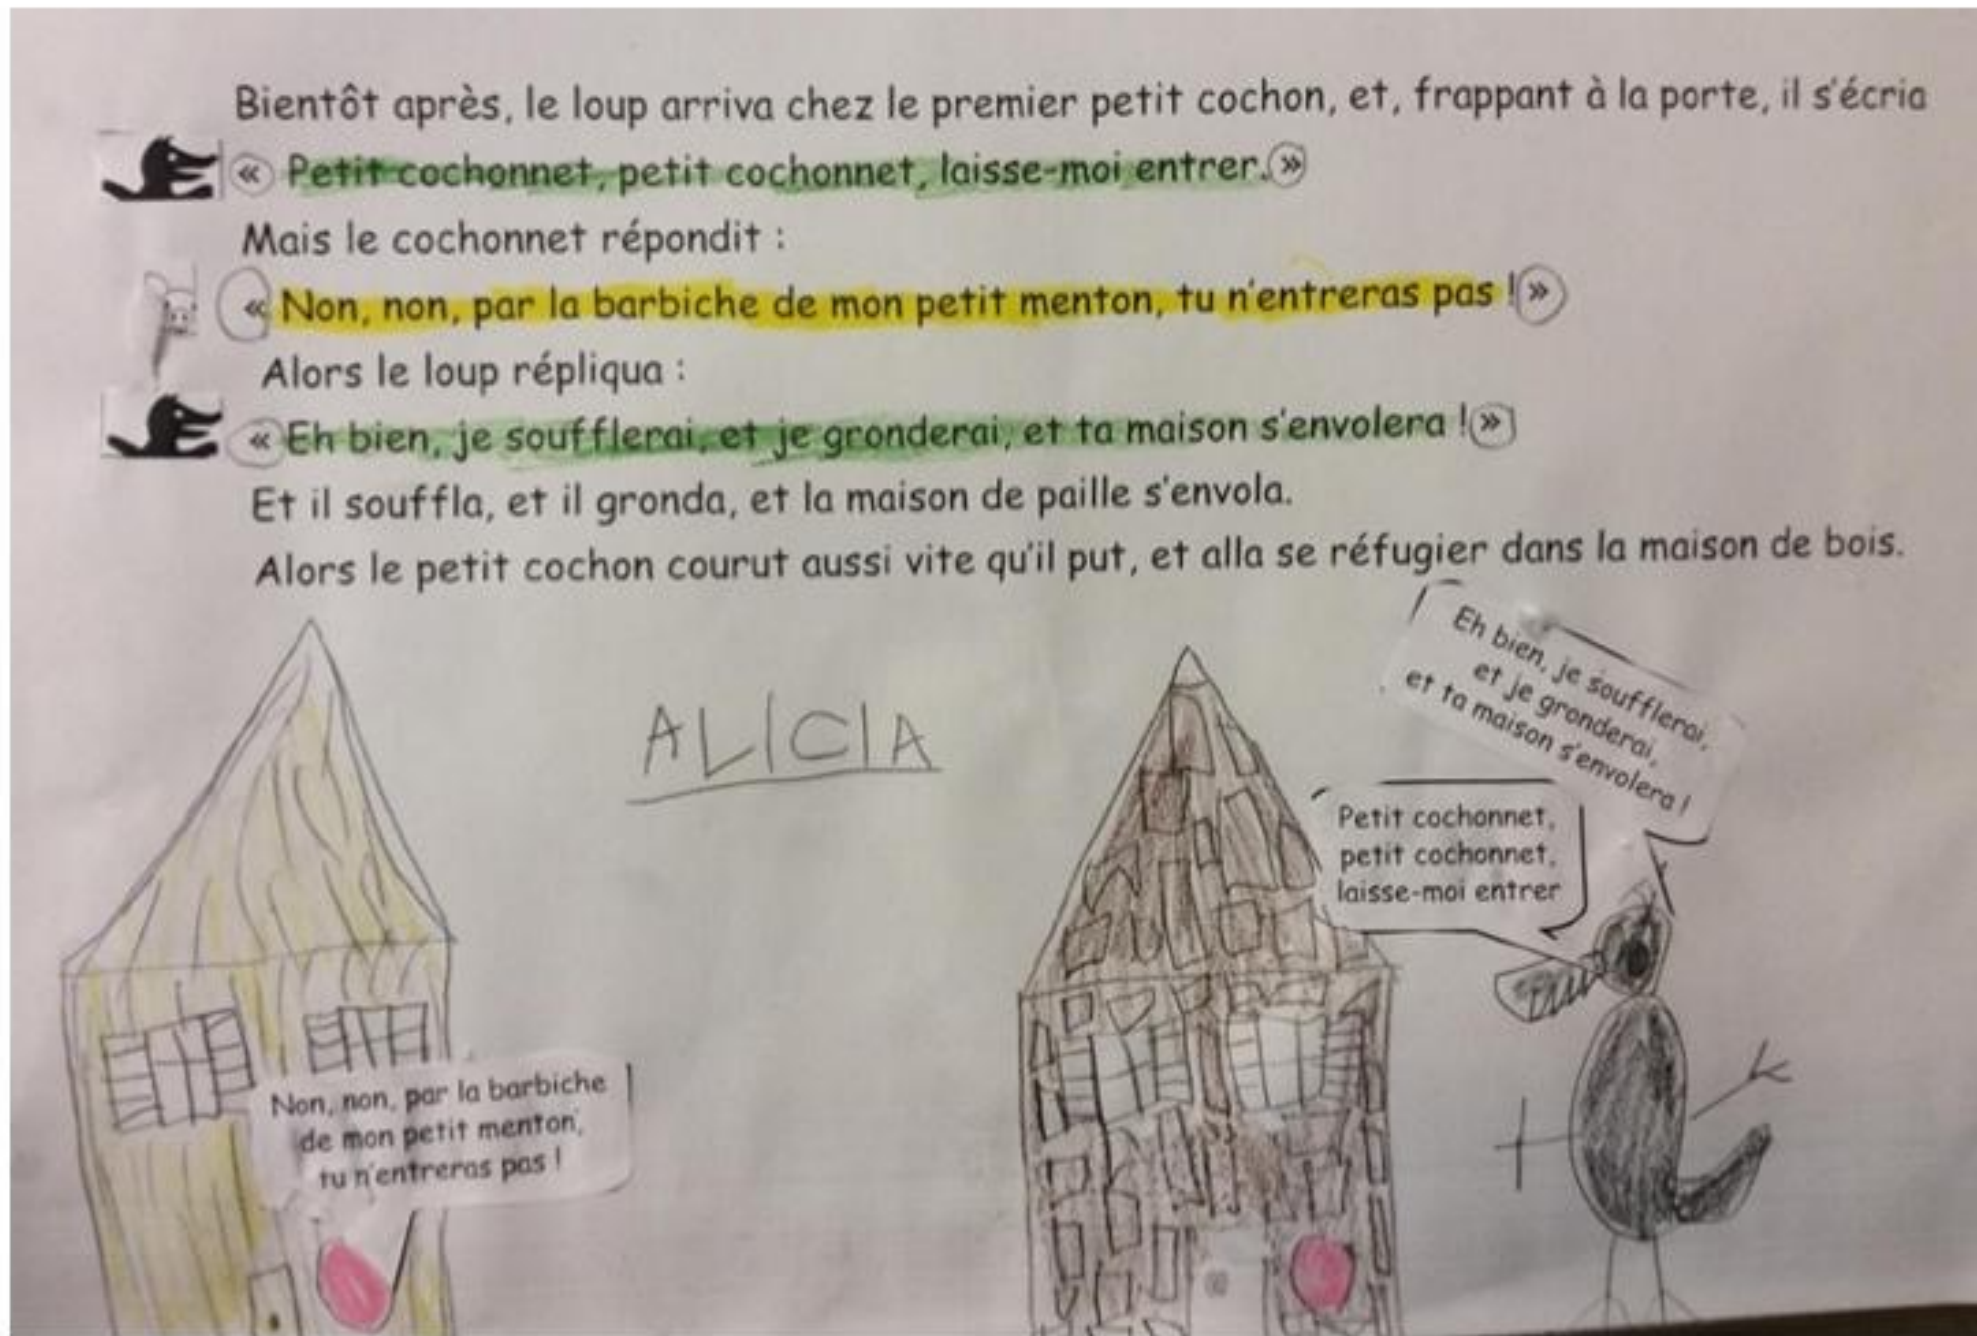 Bientôt après, le loup arriva chez le premier petit cochon, et, frappant à la porte, il s'écria
« Petit cochonnet, petit cochonnet, laisse-moi entrer.»
Mais le cochonnet répondit :
« Non, non, par la barbiche de mon petit menton, tu n'entreras pas !»
Alors le loup répliqua :
« Eh bien, je soufflerai, et je gronderai, et ta maison s'envolera !»
Et il souffla, et il gronda, et la maison de paille s'envola.
Alors le petit cochon courut aussi vite qu'il put, et alla se réfugier dans la maison de bois.
ALICIA
Eh bien, je soufflerai,
et je gronderai,
et ta maison s'envolera !
Petit cochonnet,
petit cochonnet,
laisse-moi entrer
Non, non, par la barbiche
de mon petit menton,
tu n'entreras pas !